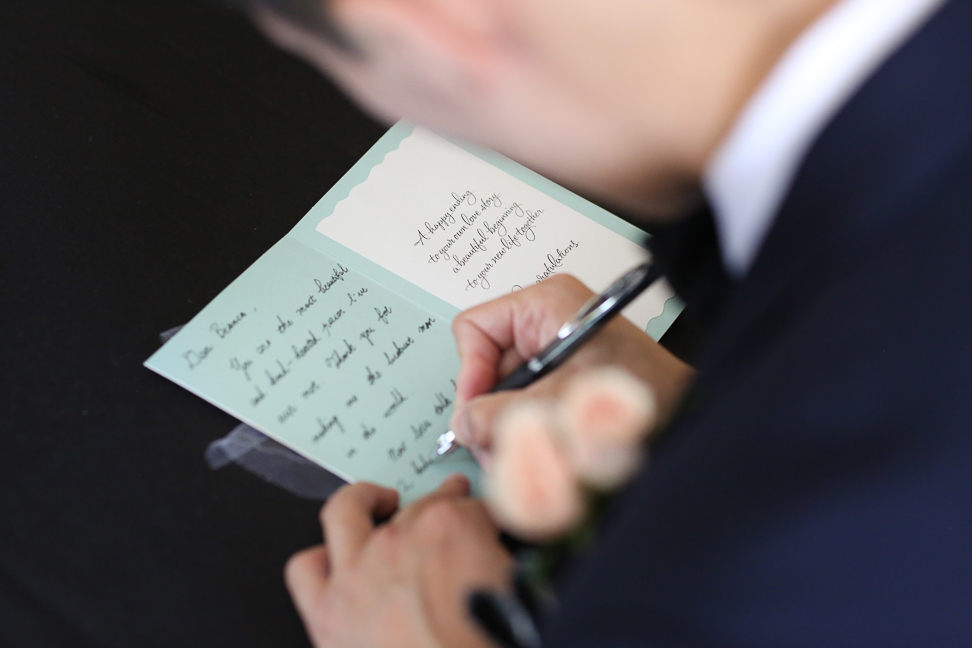 A happy ending
to your own love story,
a beautiful beginning
to your new life together.
Dear Bianca,
You are the most beautiful
and kind-hearted person I've
ever met. Thank you for
making me the luckiest man
in the world.